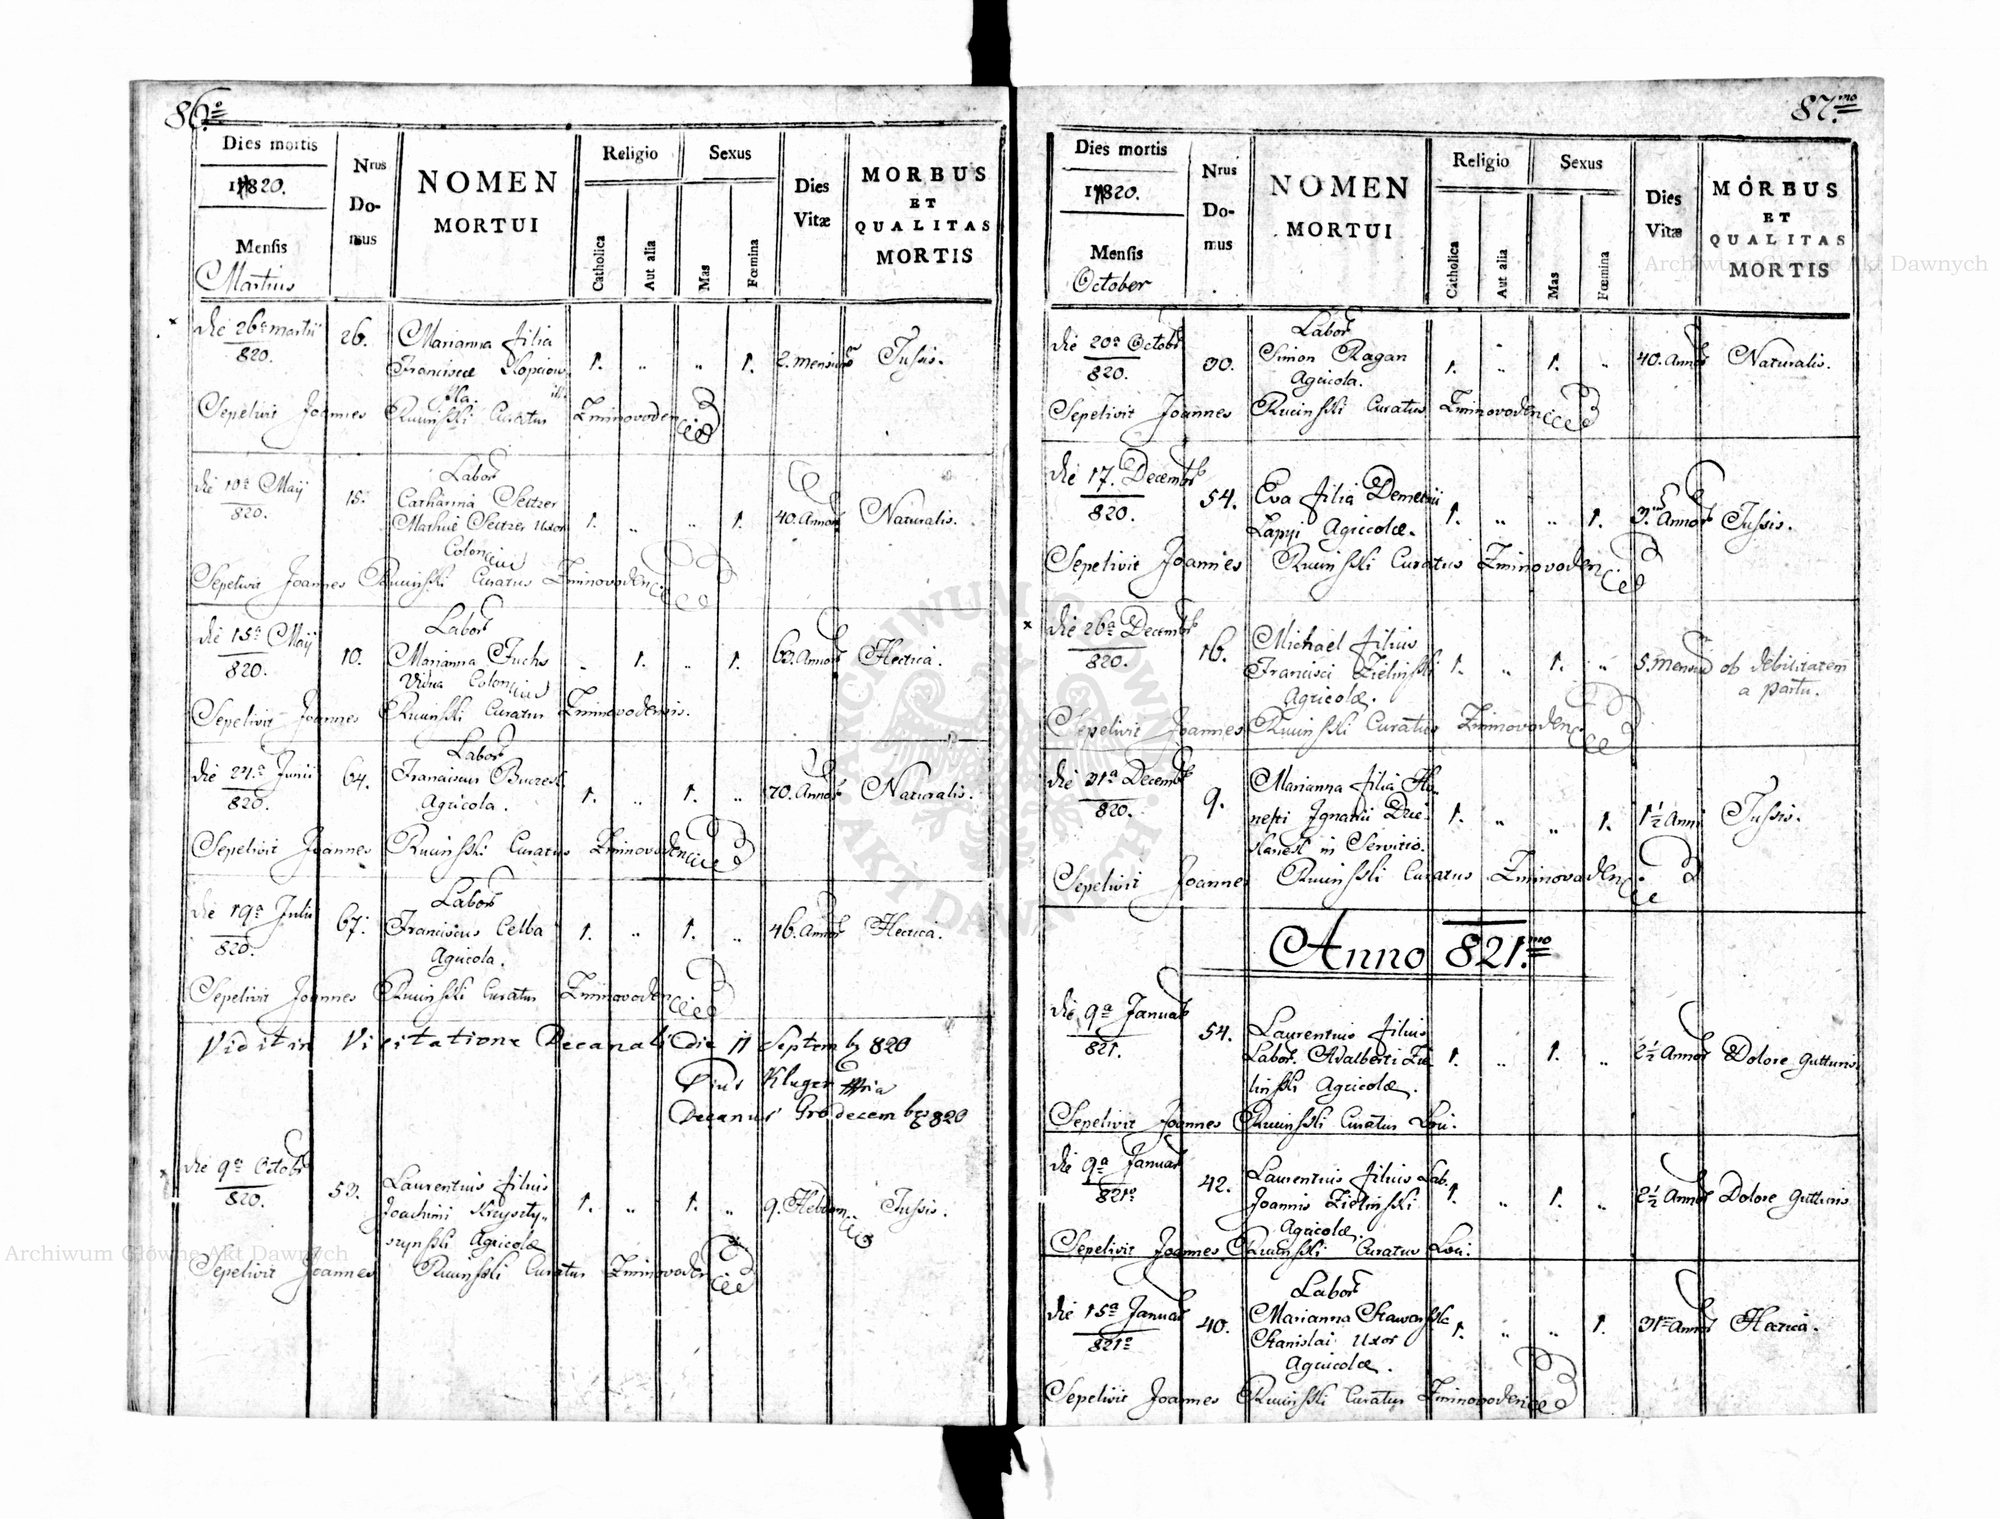 86º
Dies mortis
1820.
Mensis
Martius
Nrus
Do-
mus
NOMEN
MORTUI
Religio
Catholica
Aut alia
Sexus
Mas
Fœmina
Dies
Vitæ
MORBUS
ET
QUALITAS
MORTIS
die 26ª Martii
820.
26.
Marianna filia
Franciscæ
1. " " 1.
2. mensium
Tussis.
Sepelivit Joannes Rucinski Curatus Zimnovodencis
die 10ª Maij
820.
15.
Labor
Catharina Seitzer
Mathiæ Seitzer Uxor
Colonici
1. " " 1.
40. Annor
Naturalis.
Sepelivit Joannes Rucinski Curatus Zimnovodencis
die 15ª Maij
820.
10.
Labor
Marianna Fuchs
Vidua
" 1. " 1.
63. Annor
Hectica.
Sepelivit Joannes Rucinski Curatus Zimnovodensis.
die 24ª Junii
820.
64.
Labor
Franciscus
Agricola.
1. " 1. "
70. Annor
Naturalis.
Sepelivit Joannes Rucinski Curatus Zimnovodencis
die 19ª Julii
820.
67.
Labor
Franciscus Celba
Agricola.
1. " 1. "
46. Annor
Hectica.
Sepelivit Joannes Rucinski Curatus Zimnovodencis
Vidit in Visitatione Decanali die 11 Septembʒ 820
Pius Kluger
Decanus Grodecem bʒ 820
die 9ª Octobr
820.
53.
Laurentius filius
Joachimi Kryszty-
szynski Agricolæ
1. " 1. "
9. Hebdom.
Tussis.
Sepelivit Joannes Rucinski Curatus Zimnovodencis
87.mo
Dies mortis
1820.
Mensis
October
Nrus
Do-
mus
NOMEN
MORTUI
Religio
Catholica
Aut alia
Sexus
Mas
Fœmina
Dies
Vitæ
MORBUS
ET
QUALITAS
MORTIS
die 20ª Octobr
820.
30.
Labor
Simon Ragan
Agricola.
1. " 1. "
40. Annor
Naturalis.
Sepelivit Joannes Rucinski Curatus Zimnovodencis
die 17. Decembr
820.
54.
Eva filia Demetrii
Lapyi Agricolæ.
1. " " 1.
3. Annor
Tussis.
Sepelivit Joannes Rucinski Curatus Zimnovodencis
die 26ª Decembr
820.
16.
Michael filius
Francisci Zielinski
Agricolæ.
1. " 1. "
5. Mensium
ob debilitatem
a partu.
Sepelivit Joannes Rucinski Curatus Zimnovodencis
die 31ª Decembr
820.
9.
Marianna filia Ho-
nesti Ignatii
in Servitio.
1. " " 1.
1½ Anni
Tussis.
Sepelivit Joannes Rucinski Curatus Zimnovodencis
Anno 821.mo
die 9ª Januar
821.
54.
Laurentius filius
Labor. Adalberti Zie-
linski Agricolæ.
1. " 1. "
2½ Annor
Dolore gutturis
Sepelivit Joannes Rucinski Curatus Loci.
die 9ª Januar
821º
42.
Laurentius filius Lab.
Joannis Zielinski
Agricolæ.
1. " 1. "
2½ Annor
Dolore Gutturis
Sepelivit Joannes Rucinski Curatus Loci.
die 15ª Januar
821º
40.
Labor
Marianna
Stanislai Uxor
Agricolæ.
1. " " 1.
31 Annor
Hectica.
Sepelivit Joannes Rucinski Curatus Zimnovodencis
Archiwum Główne Akt Dawnych
Archiwum Główne Akt Dawnych
ARCHIWUM GŁÓWNE
AKT DAWNYCH